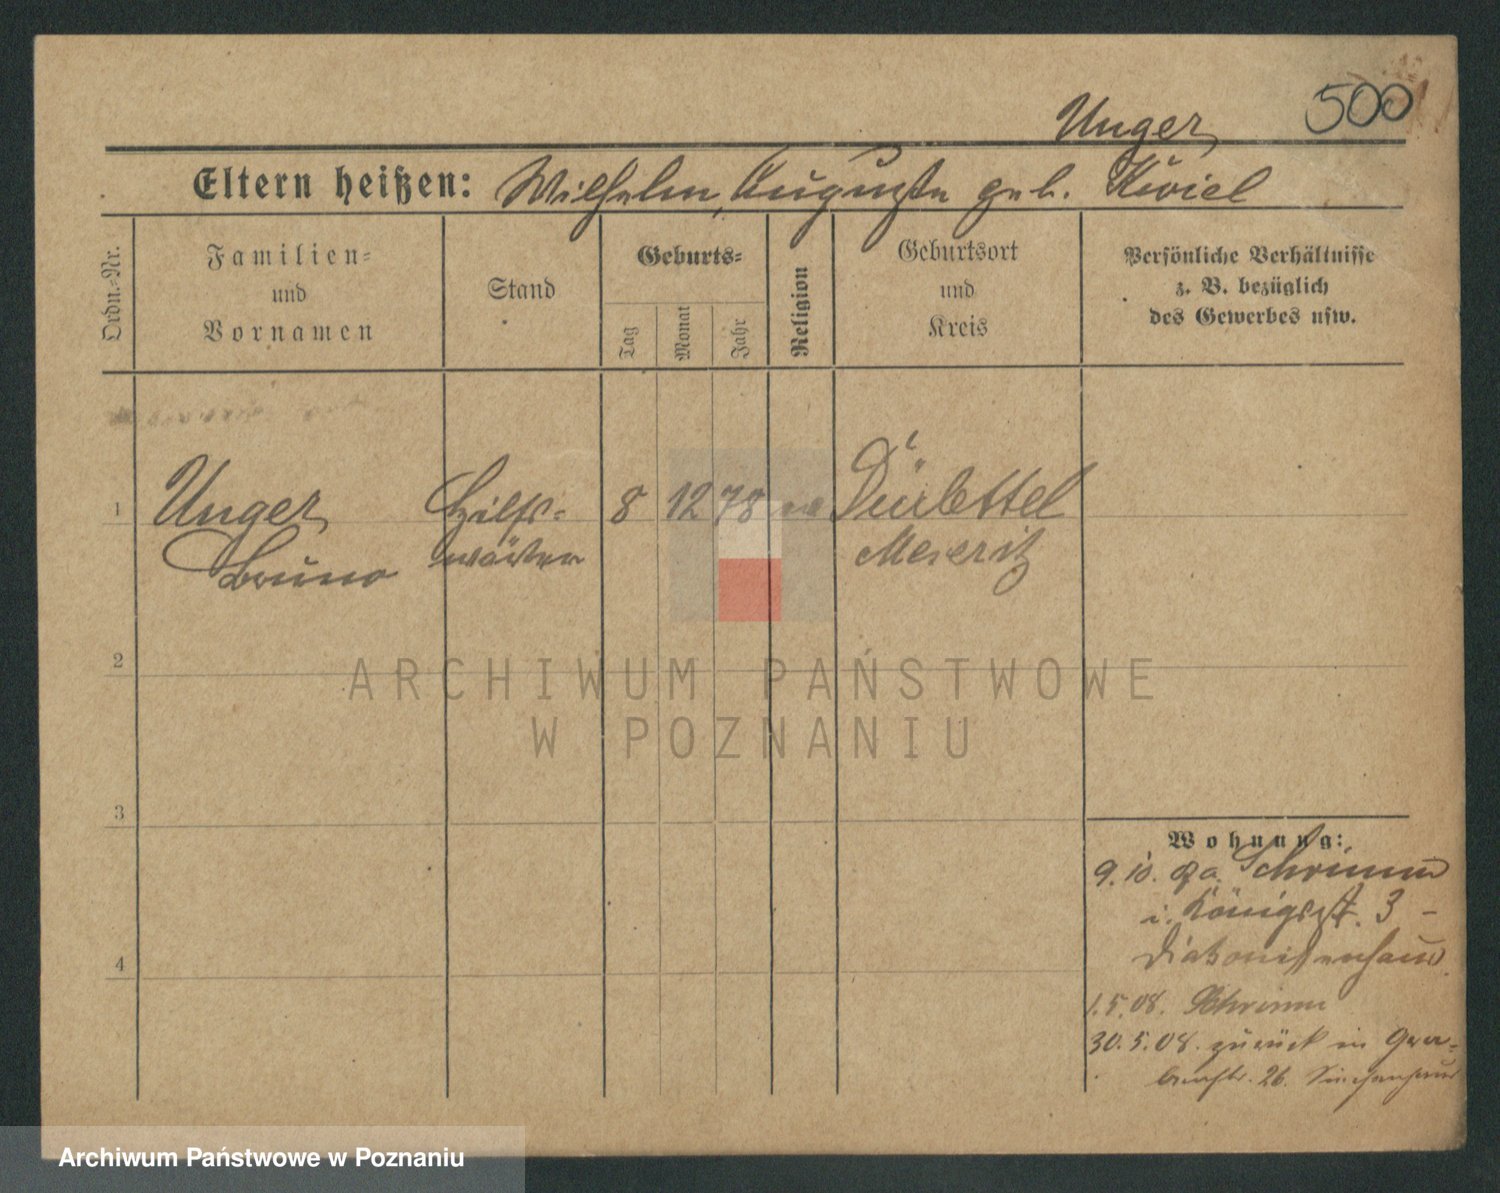 500
Unger
Eltern heißen: Wilhelm, Auguste geb. Kwiel
Ordn.-Nr.
Familien-
und
Vornamen
Stand
Geburts-
Tag
Monat
Jahr
Religion
Geburtsort
und
Kreis
Persönliche Verhältnisse
z. B. bezüglich
des Gewerbes usw.
1
Unger
Bruno
Hilfs-
wärter
8
12
78
Dürlettel
Meseritz
2
3
4
Wohnung:
Schrimm
i. Königstr. 3 -
Diakonissenhaus
1.5.08. Schrimm
30.5.08. zurück in Gra-
benstr. 26. Siechenhaus
ARCHIWUM PAŃSTWOWE
W POZNANIU
Archiwum Państwowe w Poznaniu